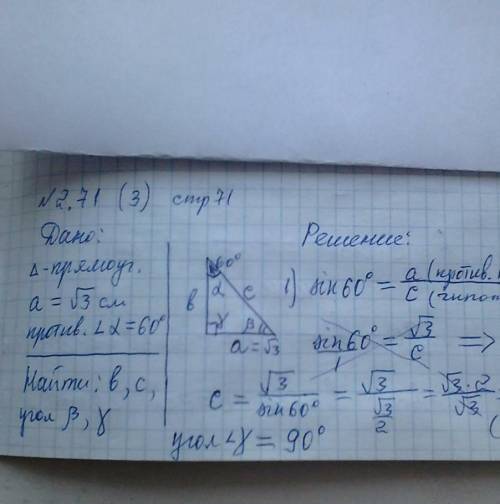 №2.71 (3) стр 71
Дано:
Δ-прямоуг.
a = √3 см
против. ∠α = 60°
Найти: в, с,
угол β, γ
60°
α
в
с
γ
β
a = √3
Решение:
1) sin60° = a (против. / c (гипот
sin60° / 1 = √3 / c =>
c = √3 / sin60° = √3 / (√3 / 2) = √3 · 2 / √3
угол ∠γ = 90°